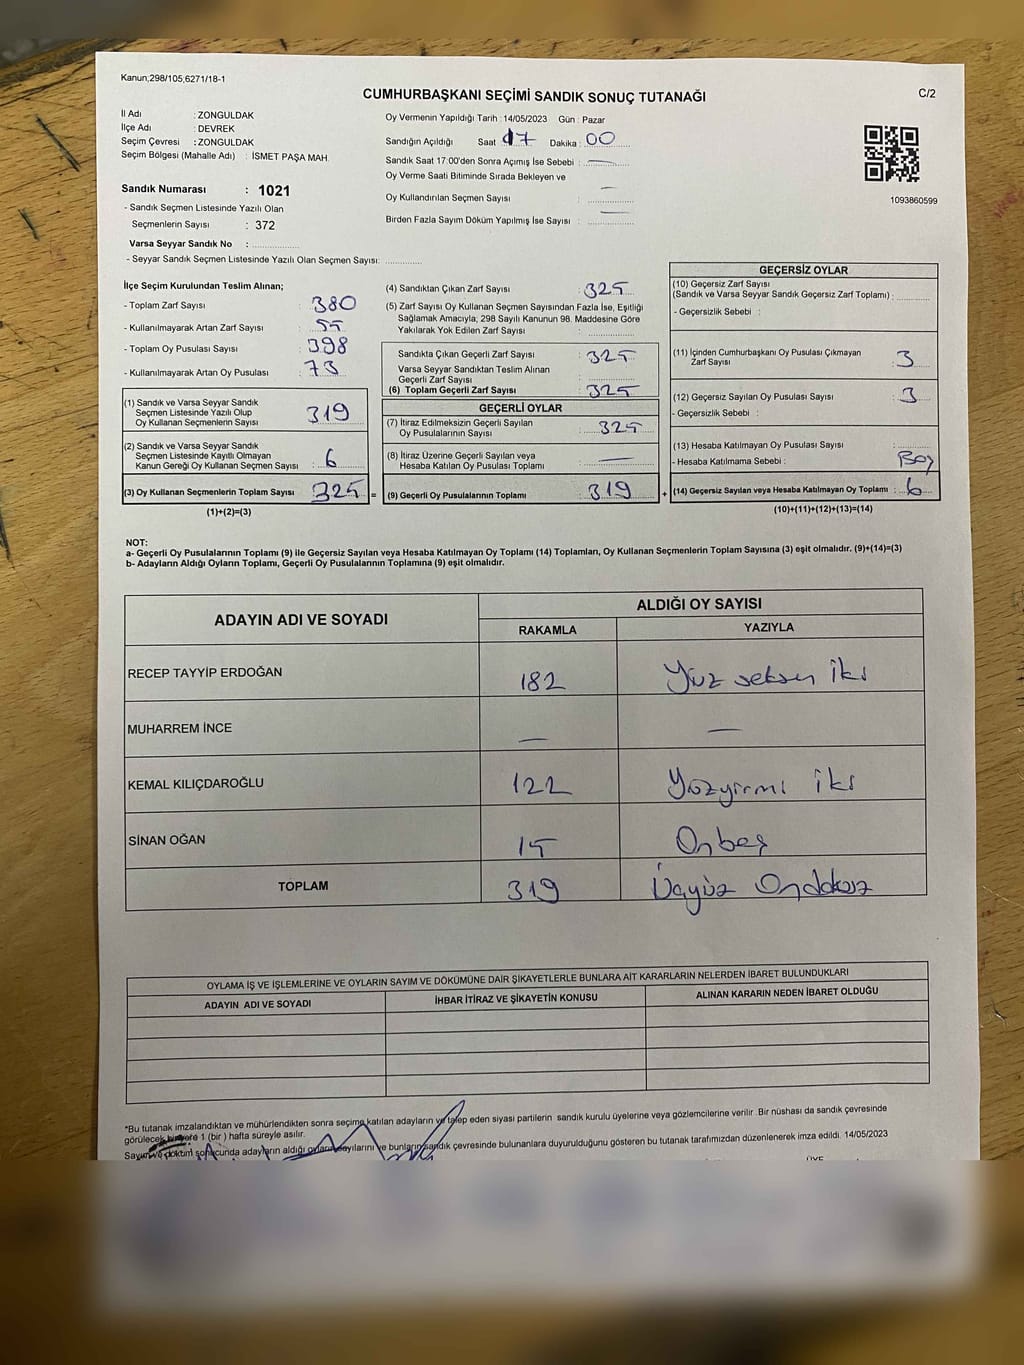 Kanun;298/105,6271/18-1
CUMHURBAŞKANI SEÇİMİ SANDIK SONUÇ TUTANAĞI
C/2
İl Adı : ZONGULDAK
İlçe Adı : DEVREK
Seçim Çevresi : ZONGULDAK
Seçim Bölgesi (Mahalle Adı) : İSMET PAŞA MAH.
Sandık Numarası : 1021
- Sandık Seçmen Listesinde Yazılı Olan
Seçmenlerin Sayısı : 372
Varsa Seyyar Sandık No :
- Seyyar Sandık Seçmen Listesinde Yazılı Olan Seçmen Sayısı:
Oy Vermenin Yapıldığı Tarih : 14/05/2023 Gün : Pazar
Sandığın Açıldığı Saat 17 Dakika : 00
Sandık Saat 17:00'den Sonra Açımış İse Sebebi : —
Oy Verme Saati Bitiminde Sırada Bekleyen ve
Oy Kullandırılan Seçmen Sayısı : —
Birden Fazla Sayım Döküm Yapılmış İse Sayısı : —
1093860599
İlçe Seçim Kurulundan Teslim Alınan;
- Toplam Zarf Sayısı : 380
- Kullanılmayarak Artan Zarf Sayısı : 55
- Toplam Oy Pusulası Sayısı : 398
- Kullanılmayarak Artan Oy Pusulası : 73
(1) Sandık ve Varsa Seyyar Sandık
Seçmen Listesinde Yazılı Olup
Oy Kullanan Seçmenlerin Sayısı : 319
(2) Sandık ve Varsa Seyyar Sandık
Seçmen Listesinde Kayıtlı Olmayan
Kanun Gereği Oy Kullanan Seçmen Sayısı : 6
(3) Oy Kullanan Seçmenlerin Toplam Sayısı : 325 =
(1)+(2)=(3)
(4) Sandıktan Çıkan Zarf Sayısı : 325
(5) Zarf Sayısı Oy Kullanan Seçmen Sayısından Fazla İse, Eşitliği
Sağlamak Amacıyla; 298 Sayılı Kanunun 98. Maddesine Göre
Yakılarak Yok Edilen Zarf Sayısı :
Sandıkta Çıkan Geçerli Zarf Sayısı : 325
Varsa Seyyar Sandıktan Teslim Alınan
Geçerli Zarf Sayısı :
(6) Toplam Geçerli Zarf Sayısı : 325
GEÇERLİ OYLAR
(7) İtiraz Edilmeksizin Geçerli Sayılan
Oy Pusulalarının Sayısı : 325
(8) İtiraz Üzerine Geçerli Sayılan veya
Hesaba Katılan Oy Pusulası Toplamı : —
(9) Geçerli Oy Pusulalarının Toplamı : 319 +
GEÇERSİZ OYLAR
(10) Geçersiz Zarf Sayısı
(Sandık ve Varsa Seyyar Sandık Geçersiz Zarf Toplamı) :
- Geçersizlik Sebebi :
(11) İçinden Cumhurbaşkanı Oy Pusulası Çıkmayan
Zarf Sayısı : 3
(12) Geçersiz Sayılan Oy Pusulası Sayısı : 3
- Geçersizlik Sebebi :
(13) Hesaba Katılmayan Oy Pusulası Sayısı :
- Hesaba Katılmama Sebebi : Boş
(14) Geçersiz Sayılan veya Hesaba Katılmayan Oy Toplamı : 6
(10)+(11)+(12)+(13)=(14)
NOT:
a- Geçerli Oy Pusulalarının Toplamı (9) ile Geçersiz Sayılan veya Hesaba Katılmayan Oy Toplamı (14) Toplamları, Oy Kullanan Seçmenlerin Toplam Sayısına (3) eşit olmalıdır. (9)+(14)=(3)
b- Adayların Aldığı Oyların Toplamı, Geçerli Oy Pusulalarının Toplamına (9) eşit olmalıdır.
ADAYIN ADI VE SOYADI
ALDIĞI OY SAYISI
RAKAMLA YAZIYLA
RECEP TAYYİP ERDOĞAN 182 Yüz seksen iki
MUHARREM İNCE — —
KEMAL KILIÇDAROĞLU 122 Yüzyirmi iki
SİNAN OĞAN 15 Onbeş
TOPLAM 319 Üçyüz Ondokuz
OYLAMA İŞ VE İŞLEMLERİNE VE OYLARIN SAYIM VE DÖKÜMÜNE DAİR ŞİKAYETLERLE BUNLARA AİT KARARLARIN NELERDEN İBARET BULUNDUKLARI
ADAYIN ADI VE SOYADI İHBAR İTİRAZ VE ŞİKAYETİN KONUSU ALINAN KARARIN NEDEN İBARET OLDUĞU
*Bu tutanak imzalandıktan ve mühürlendikten sonra seçime katılan adayların ve talep eden siyasi partilerin sandık kurulu üyelerine veya gözlemcilerine verilir. Bir nüshası da sandık çevresinde
görülecek bir yere 1 (bir ) hafta süreyle asılır.
Sayım ve döküm sonucunda adayların aldığı oyların sayılarını ve bunların sandık çevresinde bulunanlara duyurulduğunu gösteren bu tutanak tarafımızdan düzenlenerek imza edildi. 14/05/2023